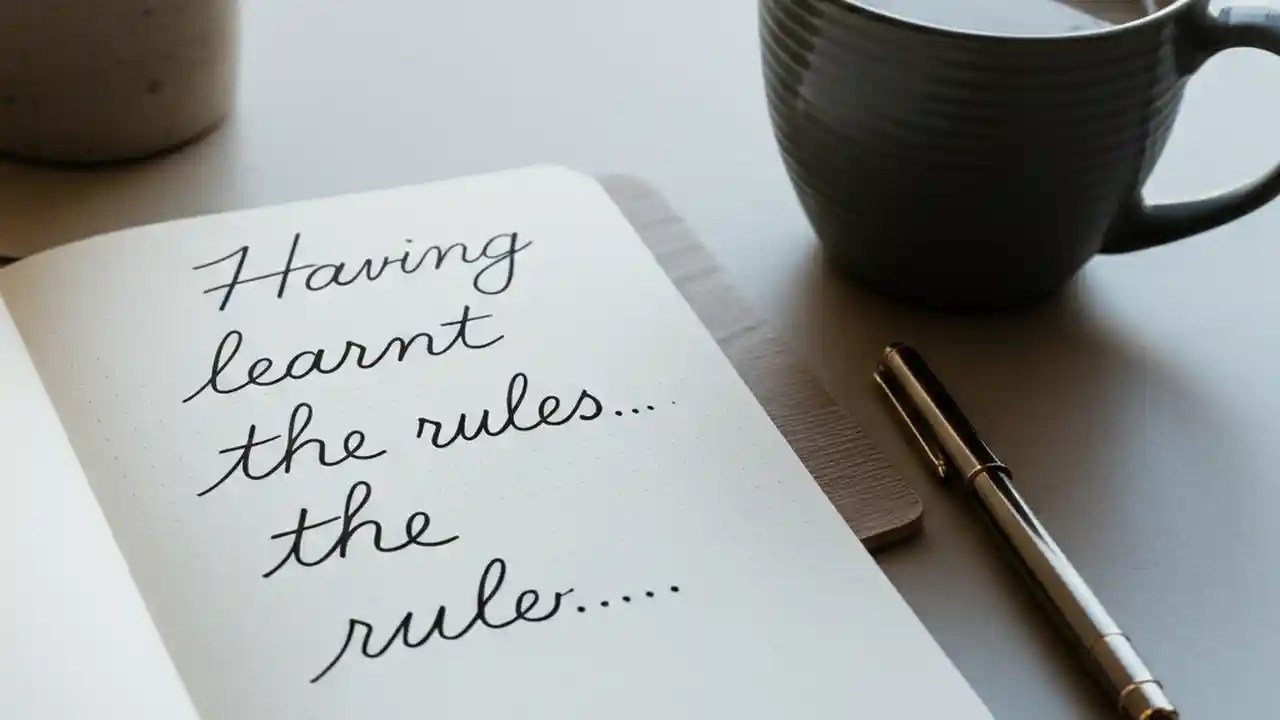 Having
learnt
the rules...
the
ruler.....